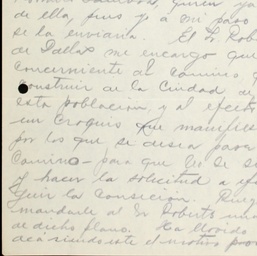 de ella, pues yo a mi paso
se la enviaria. El Sr. Rob
de Dallas me encargo que
concerniente al camino
construir de la Ciudad de
esta población, y al efecto
un Croquis que manifies
por los que se desea pasar
Camino - para que
y hacer la solicitud a
guir la Concesión.
mandarle al Sr Roberts una
de dicho plano. Ha llovido
acá siendo este el motivo por